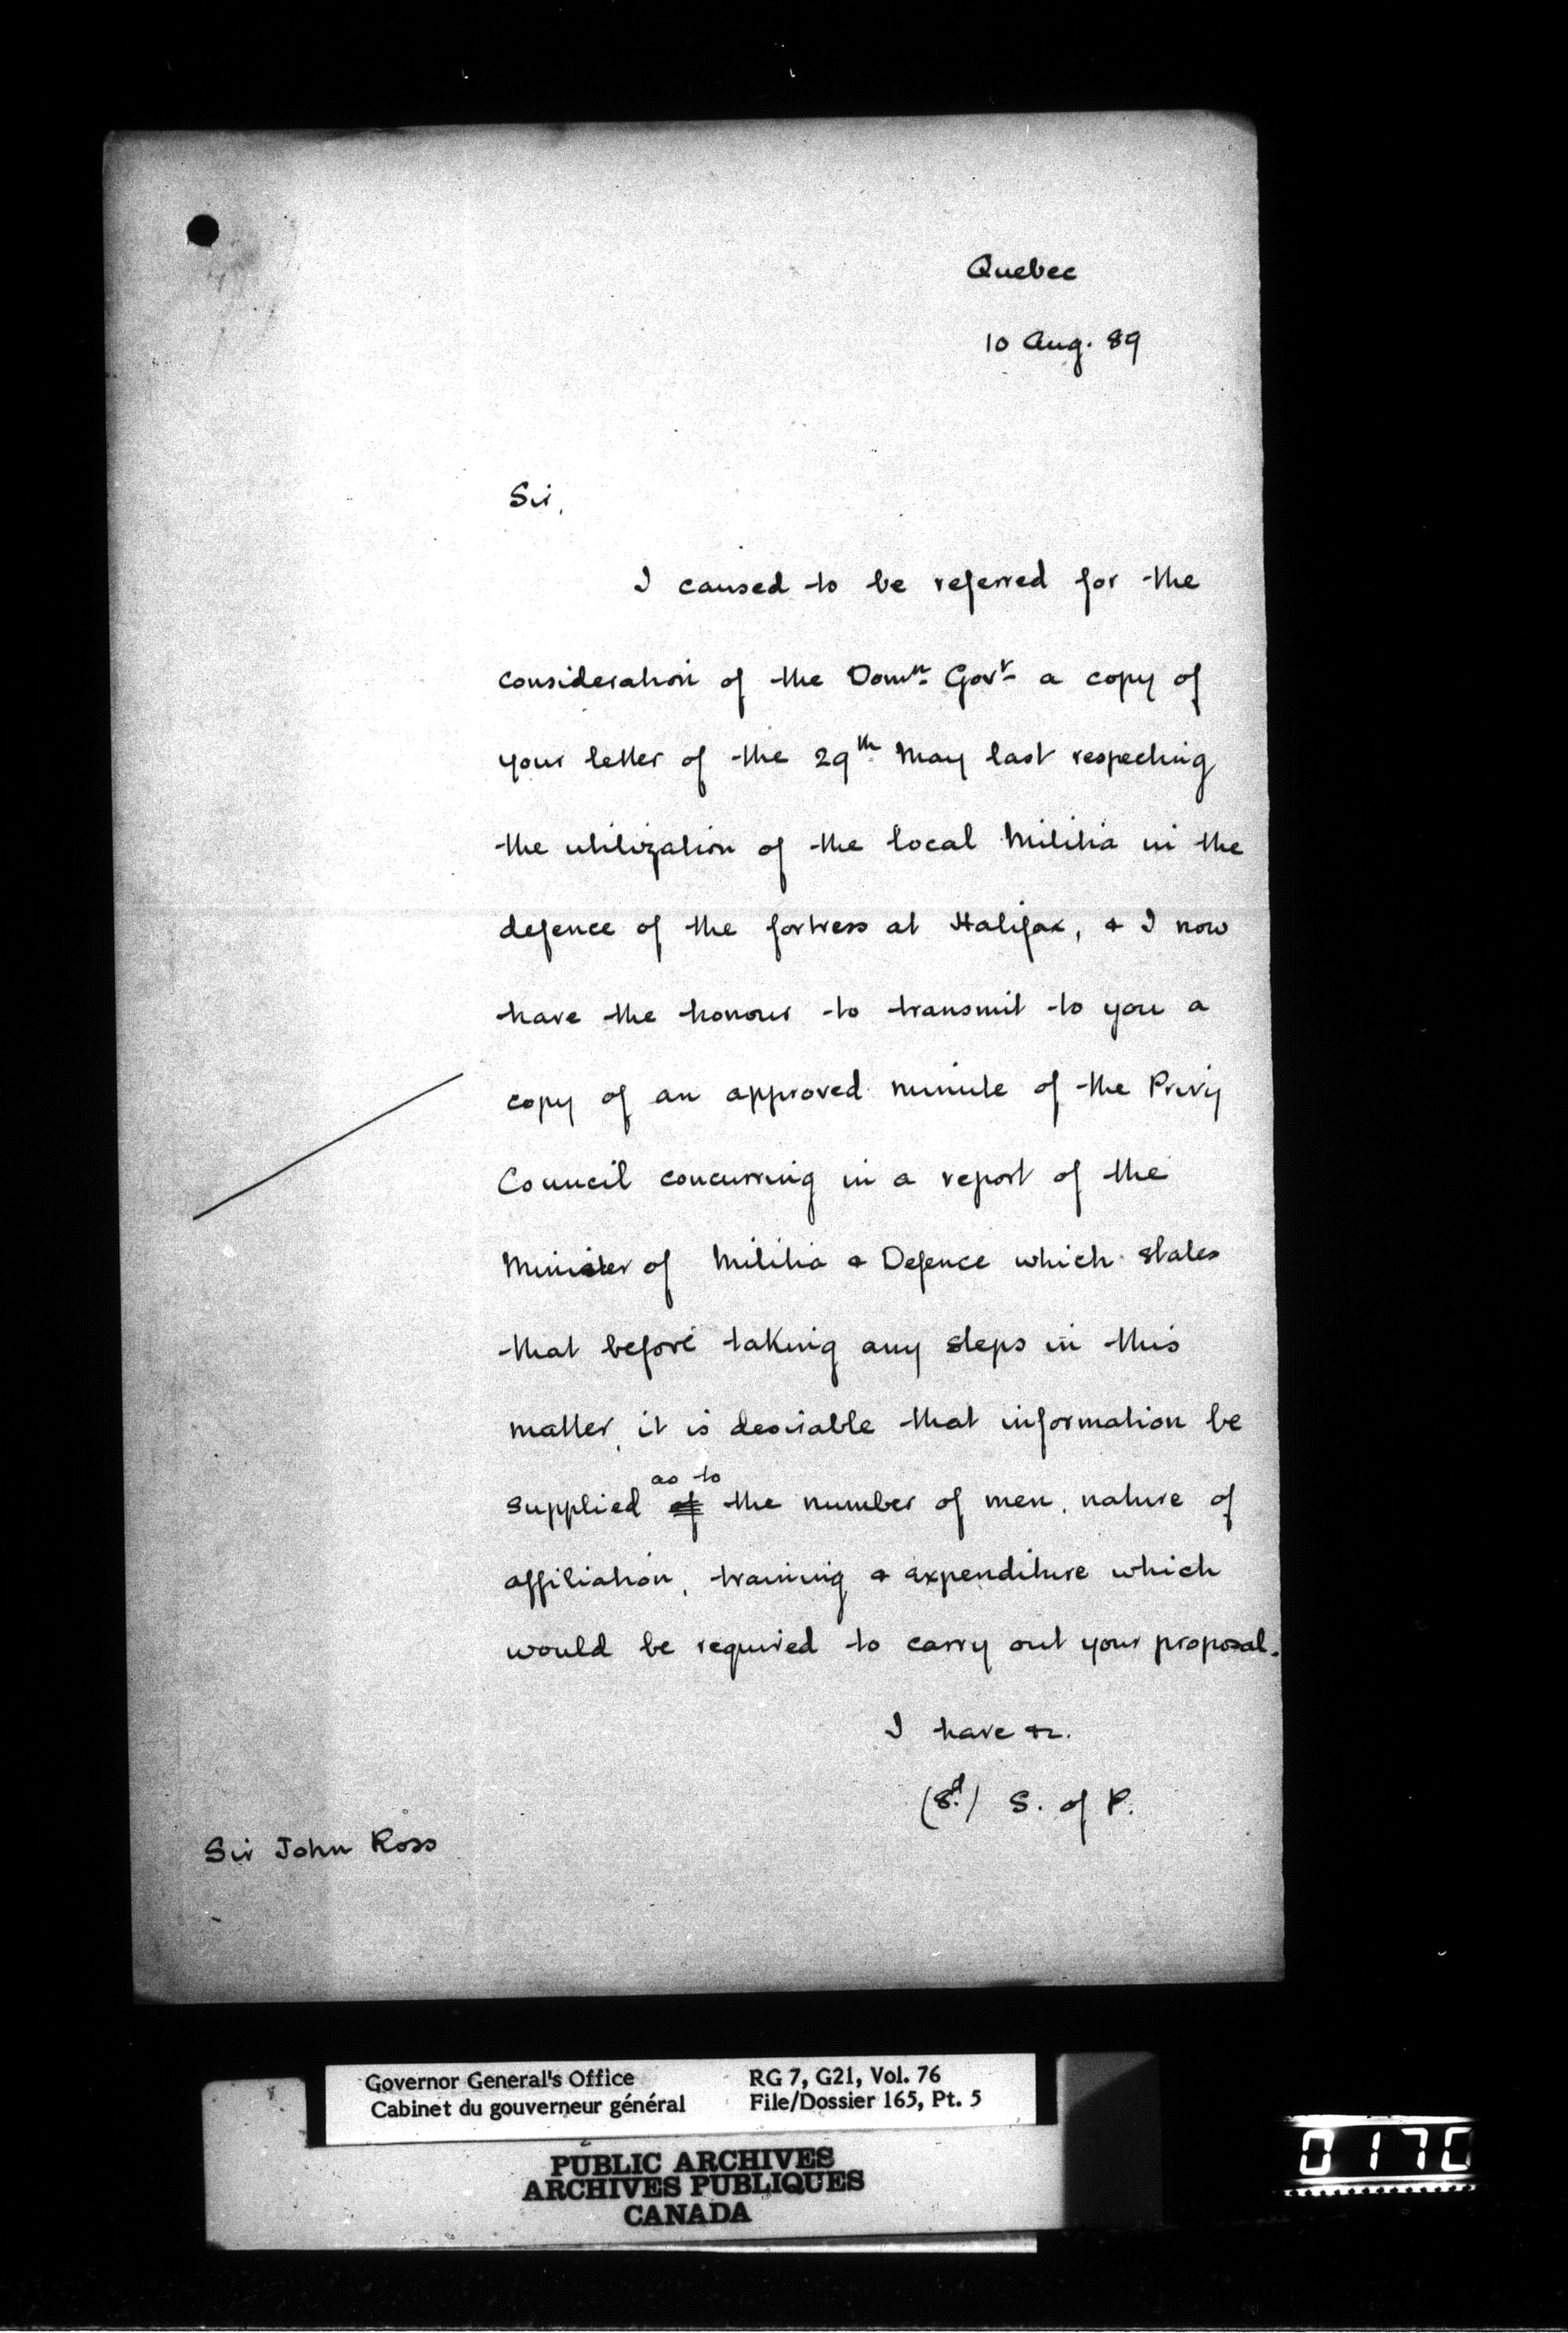 Quebec
10 Aug. 89
Sir,
I caused to be referred for the
consideration of the Domn. Govt. a copy of
your letter of the 29th. May last respecting
the utilization of the local Militia in the
defence of the fortress at Halifax, & I now
have the honour to transmit to you a
copy of an approved minute of the Privy
Council concurring in a report of the
Minister of Militia & Defence which states
that before taking any steps in this
matter, it is desirable that information be
as to
supplied of the number of men, nature of
affiliation, training & expenditure which
would be required to carry out your proposal.
I have &c.
(Sd.) S. of P.
Sir John Ross
Governor General's Office RG 7, G21, Vol. 76
Cabinet du gouverneur général File/Dossier 165, Pt. 5
PUBLIC ARCHIVES
ARCHIVES PUBLIQUES
CANADA
0170